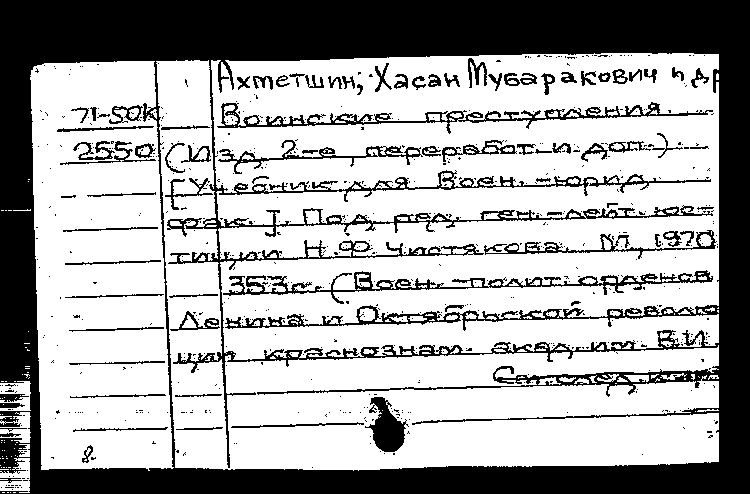 Ахметшин, Хасан Мубаракович и др
71-50К Воинские преступления.
2550 (Изд. 2-е, переработ. и доп.).
[Учебник для Воен.-юрид.
фак.]. Под ред. ген.-лейт. юс-
тиции Н.Ф. Чистякова. М., 1970
353с. (Воен.-полит. орденов
Ленина и Октябрьской револю
ции краснознам. акад. им. В.И.
См. след. карт
8.